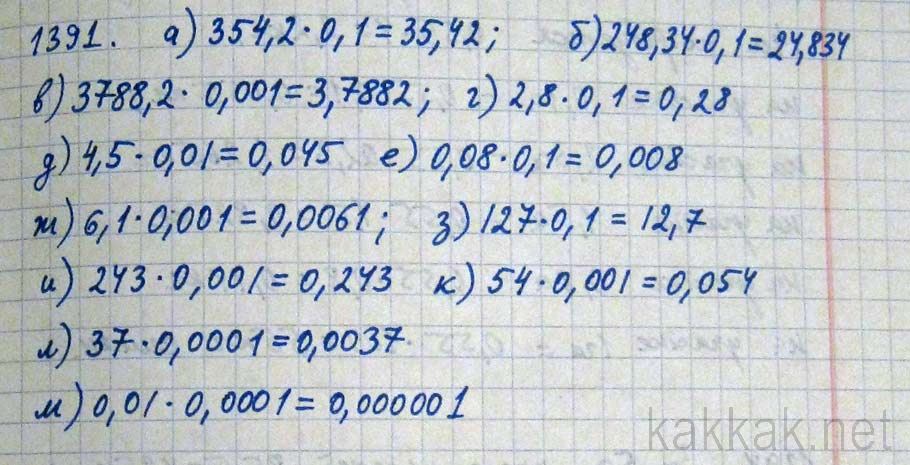 1391. а) 354,2 · 0,1 = 35,42; б) 248,34 · 0,1 = 24,834
в) 3788,2 · 0,001 = 3,7882; г) 2,8 · 0,1 = 0,28
д) 4,5 · 0,01 = 0,045 е) 0,08 · 0,1 = 0,008
ж) 6,1 · 0,001 = 0,0061; з) 127 · 0,1 = 12,7
и) 243 · 0,001 = 0,243 к) 54 · 0,001 = 0,054
л) 37 · 0,0001 = 0,0037
м) 0,01 · 0,0001 = 0,000001
kakkak.net